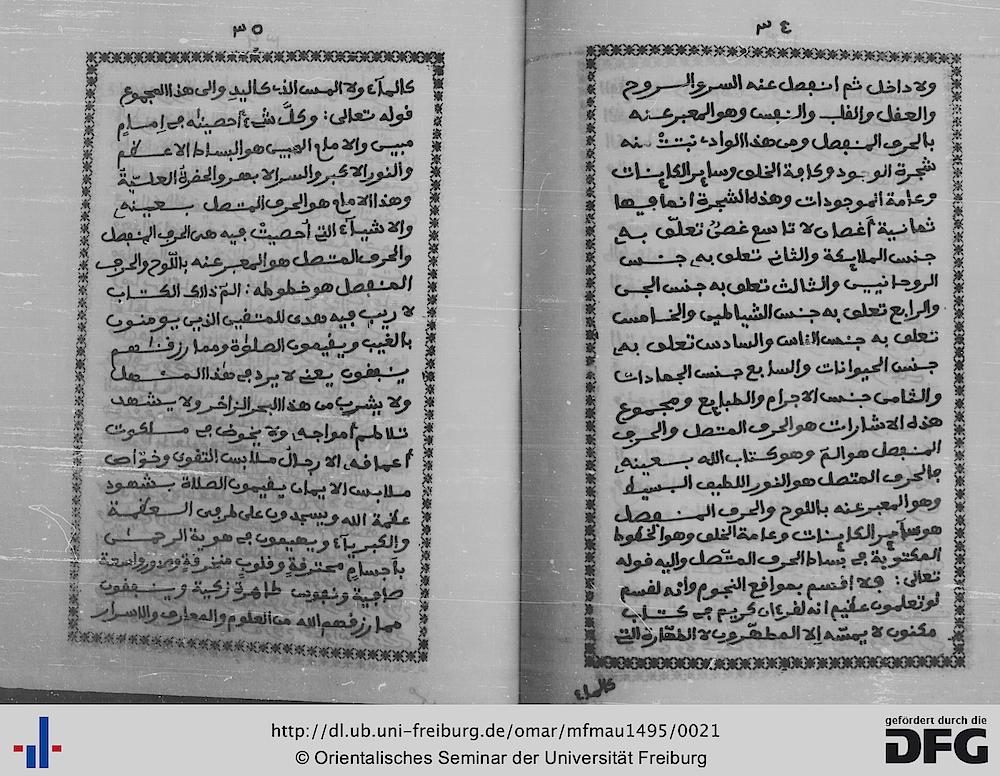 ٣٤
ولا داخل ثم انفصل عنه السر والروح
والعقل والقلب والنفس وهو المعبر عنه
بالحرف المنفصل ومن هذا الواد نبتت منه
شجرة الوجود وكافة الخلق وسائر الكاينات
وعامة الموجودات وهذه الشجرة انما فيها
ثمانية أغصان لا تاسع غصن تعلق به
جنس الملايكة والثاني تعلق به جنس
الروحانيين والثالث تعلق به جنس الجن
والرابع تعلق به جنس الشياطين والخامس
تعلق به جنس الناس والسادس تعلق به
جنس الحيوانات والسابع جنس الجمادات
والثامن جنس الاجرام والطبايع ومجموع
هذه الاشارات هو الحرف المتصل والحرف
المنفصل هو الم وهو كتاب الله بعينه
فالحرف المتصل هو النور اللطيف البسيط
وهو المعبر عنه باللوح والحرف المنفصل
هو ساير الكاينات وعامة الخلق وهو الخطوط
المكتوبة في بساط الحرف المتصل واليه قوله
تعالى: فلا اقسم بمواقع النجوم وانه لقسم
لو تعلمون عظيم انه لقرءان كريم في كتاب
مكنون لا يمسه إلا المطهرون لا الطهارة التي
كالماء
٣٥
كالماء ولا المس الذي كاليد والى هذا المجموع
قوله تعالى: وكل شيء أحصينه في إمام
مبين والامام المبين هو البساط الاعظم
والنور الاكبر والسر الابهر والحضرة العلية
وهذا الامام هو الحرف المتصل بعينه
والاشياء التي أحصيت فيه هي الحرف المنفصل
والحرف المتصل هو المعبر عنه باللوح والحرف
المنفصل هو خطوطه: الم ذلك الكتاب
لا ريب فيه هدى للمتقين الذين يومنون
بالغيب ويقيمون الصلوة ومما رزقنهم
ينفقون يعني لا يرد في هذا المنهل
ولا يشرب من هذا البحر الزاخر ولا يشهد
تلاطم أمواجه ولا يخوض في ملكوت
أعماقه الا رجال ملابس التقوى وخواص
ملابس الايمان يقيمون الصلاة بشهود
عظمة الله ويسجدون على طرفي العظمة
والكبرياء ويهيمون في هوية الرحمن
بأجسام محترقة وقلوب متحرقة وصدور واسعة
صافية ونفوس طاهرة زكية وينفقون
مما رزقهم الله من العلوم والمعارف والاسرار
http://dl.ub.uni-freiburg.de/omar/mfmau1495/0021
© Orientalisches Seminar der Universität Freiburg
gefördert durch die
DFG